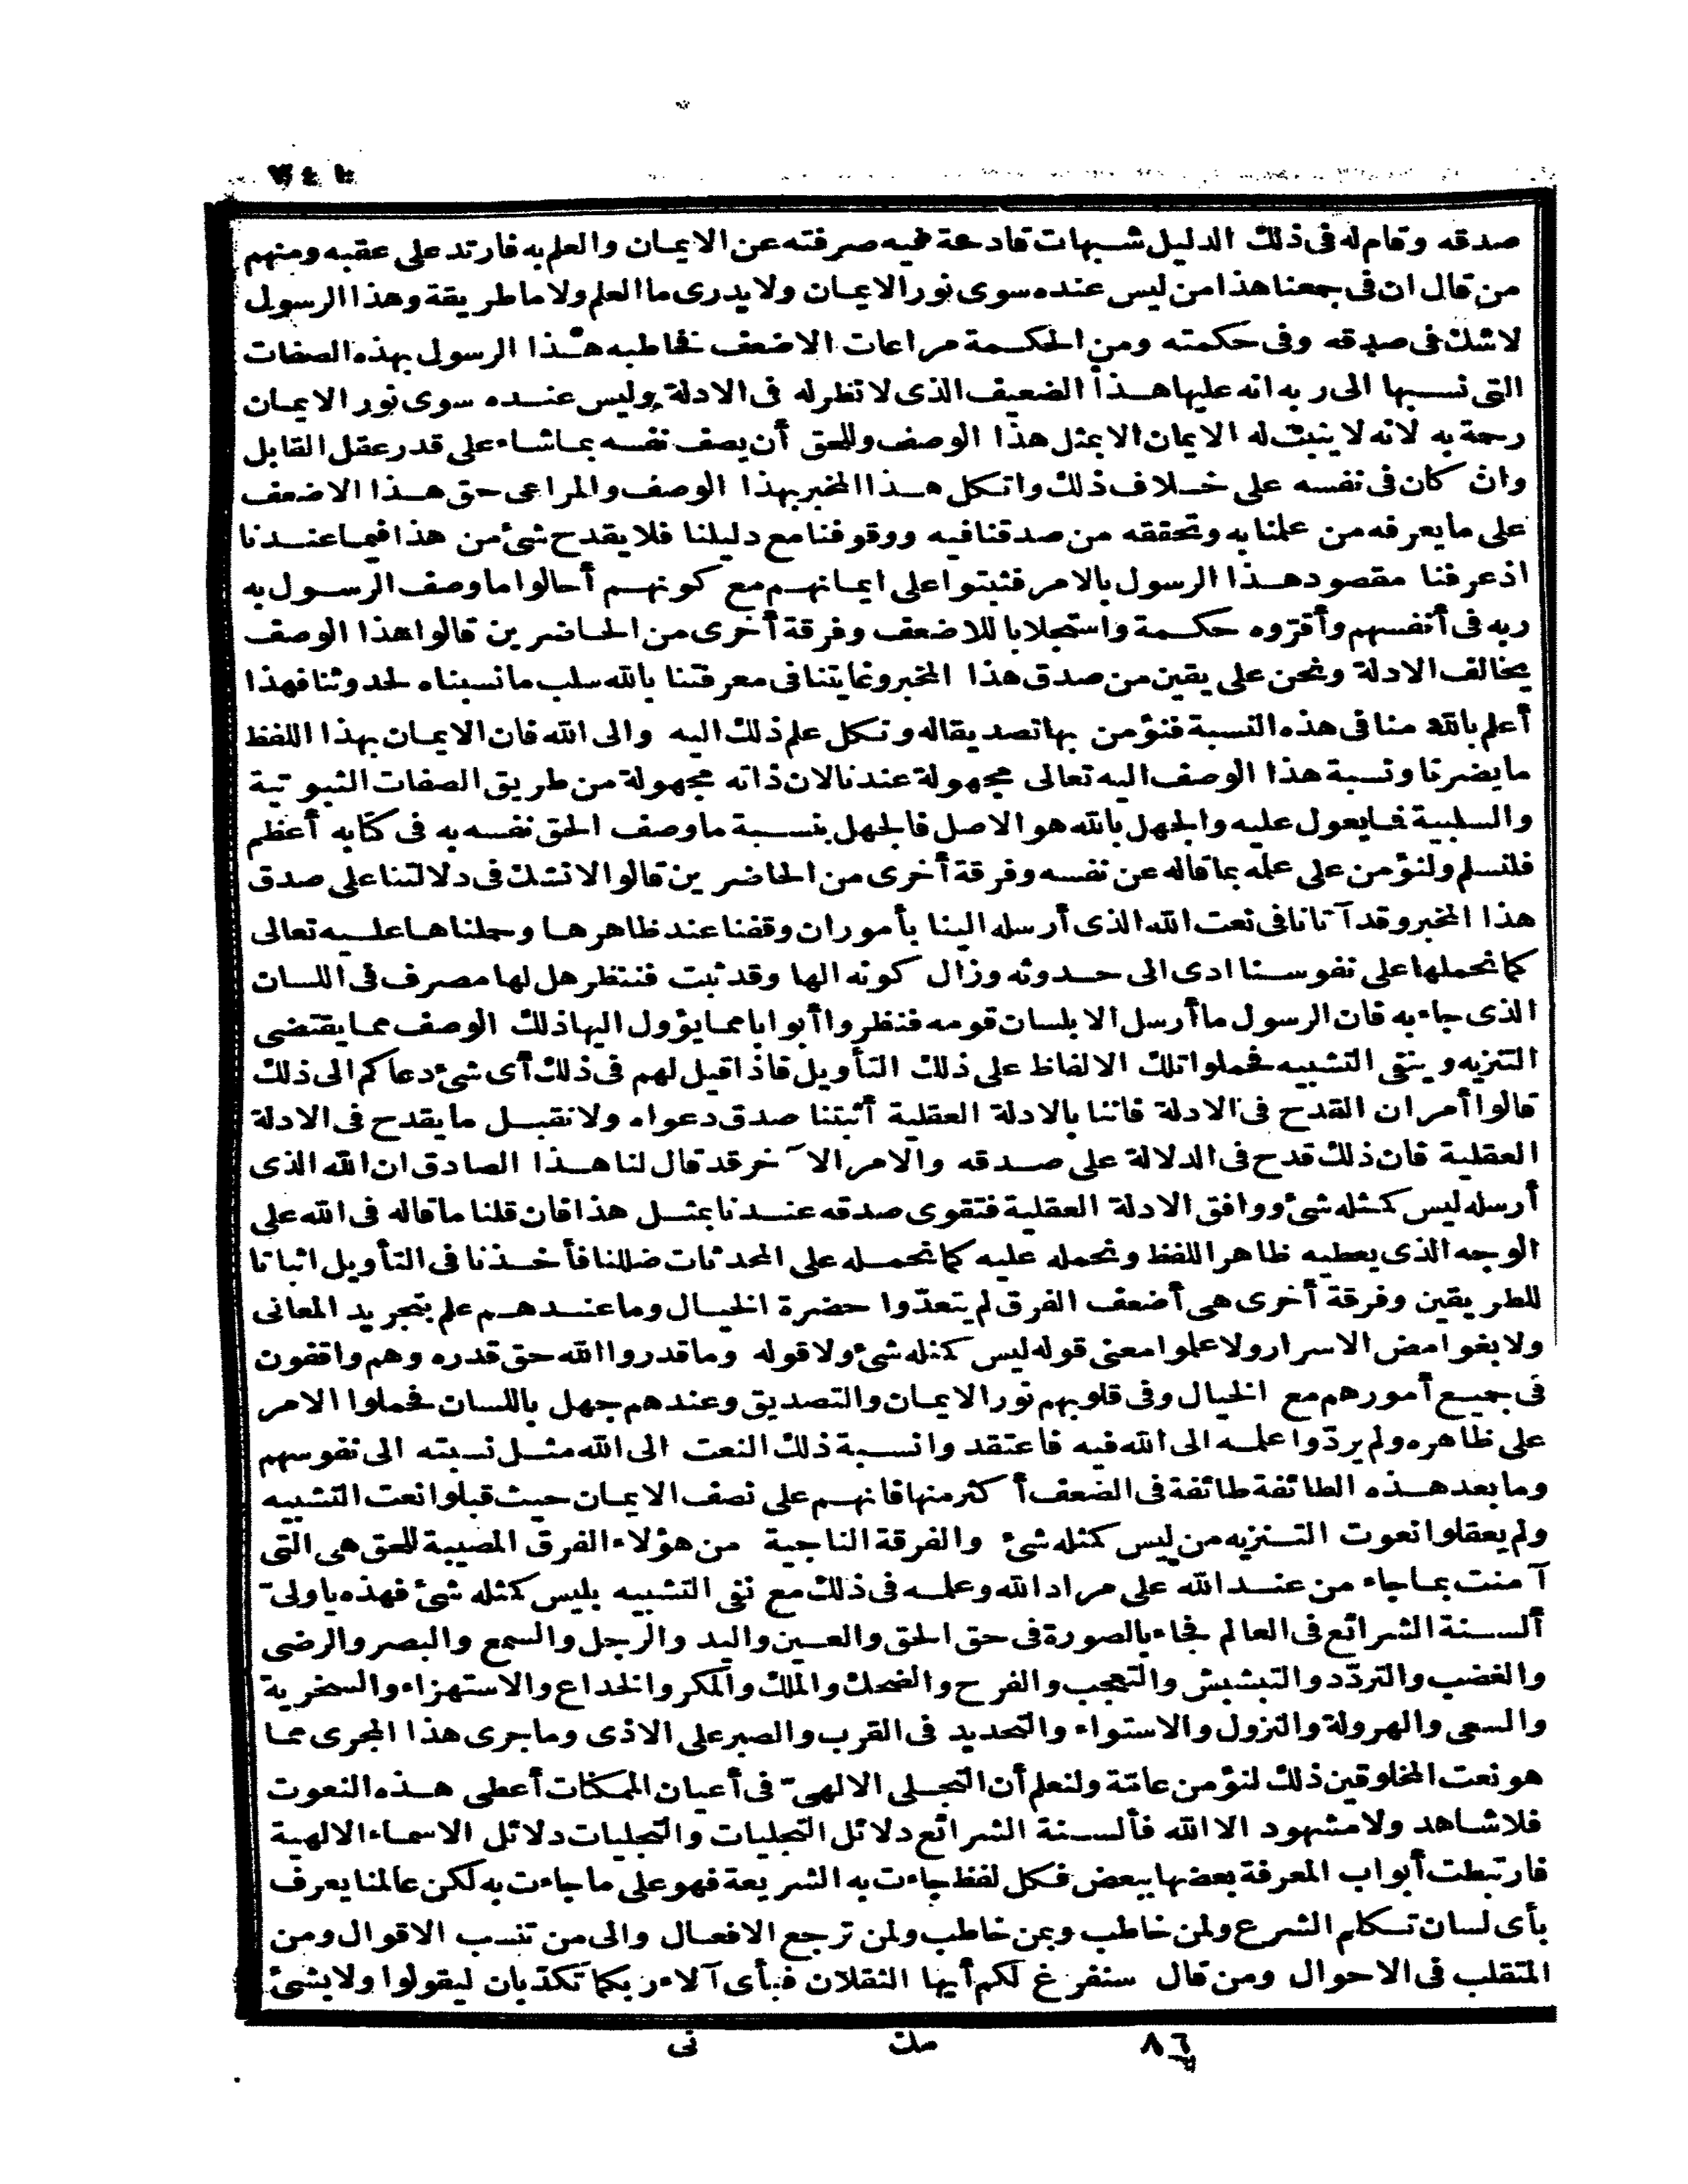 صدقه وقام له فى ذلك الدليل شبهات قادحة فيه صرفته عن الايمان والعلم به فارتد على عقبه ومنهم
من قال ان فى جمعنا هذا من ليس عنده سوى نور الايمان ولا يدرى ما العلم ولا ما طريقة وهذا الرسول
لا شك فى صدقه وفى حكمته ومن الحكمة مراعات الاضعف فخاطبه هذا الرسول بهذه الصفات
التى نسبها الى ربه انه عليها هذا الضعيف الذى لا نظر له فى الادلة وليس عنده سوى نور الايمان
رحمة به لانه لا يثبت له الايمان الا بمثل هذا الوصف وللحق أن يصف نفسه بما شاء على قدر عقل القابل
وان كان فى نفسه على خلاف ذلك واتكل هذا المخبر بهذا الوصف والمراعى حق هذا الاضعف
على ما يعرفه من علمنا به وتحققه من صدقنا فيه ووقوفنا مع دليلنا فلا يقدح شئ من هذا فيما عندنا
اذ عرفنا مقصود هذا الرسول بالامر فثبتوا على ايمانهم مع كونهم أحالوا ما وصف الرسول به
ربه فى أنفسهم وأقرّوه حكمة واستجلابا للاضعف وفرقة أخرى من الحاضرين قالوا هذا الوصف
يخالف الادلة ونحن على يقين من صدق هذا المخبر وغايتنا فى معرفتنا بالله سلب ما نسبناه لحدوثنا فهذا
أعلم بالله منا فى هذه النسبة فنؤمن بها تصديقا له ونكل علم ذلك اليه والى الله فان الايمان بهذا اللفظ
ما يضرنا ونسبة هذا الوصف اليه تعالى مجهولة عندنا لان ذاته مجهولة من طريق الصفات الثبوتية
والسلبية فما يعول عليه والجهل بالله هو الاصل فالجهل بنسبة ما وصف الحق نفسه به فى كتابه أعظم
فلنسلم ولنؤمن على علمه بما قاله عن نفسه وفرقة أخرى من الحاضرين قالوا لا نشك فى دلالتنا على صدق
هذا المخبر وقد آتانا فى نعت الله الذى أرسله الينا بأمور ان وقفنا عند ظاهرها وحملناها عليه تعالى
كما نحملها على نفوسنا ادى الى حدوثه وزال كونه الها وقد ثبت فننظر هل لها مصرف فى اللسان
الذى جاء به فان الرسول ما أرسل الا بلسان قومه فنظروا أبوابا مما يؤول اليها ذلك الوصف مما يقتضى
التنزيه وينفى التشبيه فحملوا تلك الالفاظ على ذلك التأويل فاذا قيل لهم فى ذلك أى شئ دعاكم الى ذلك
قالوا أمران القدح فى الادلة فاننا بالادلة العقلية أثبتنا صدق دعواه ولا نقبل ما يقدح فى الادلة
العقلية فان ذلك قدح فى الدلالة على صدقه والامر الآخر قد قال لنا هذا الصادق ان الله الذى
أرسله ليس كمثله شئ ووافق الادلة العقلية فتقوى صدقه عندنا بمثل هذا فان قلنا ما قاله فى الله على
الوجه الذى يعطيه ظاهر اللفظ ونحمله عليه كما نحمله على المحدثات ضللنا فأخذنا فى التأويل اثباتا
للطريقين وفرقة أخرى هى أضعف الفرق لم يتعدّوا حضرة الخيال وما عندهم علم بتجريد المعانى
ولا بغوامض الاسرار ولا علموا معنى قوله ليس كمثله شئ ولا قوله وما قدروا الله حق قدره وهم واقفون
فى جميع أمورهم مع الخيال وفى قلوبهم نور الايمان والتصديق وعندهم جهل باللسان فحملوا الامر
على ظاهره ولم يردّوا علمه الى الله فيه فاعتقدوا نسبة ذلك النعت الى الله مثل نسبته الى نفوسهم
وما بعد هذه الطائفة طائفة فى الضعف أكثر منها فانهم على نصف الايمان حيث قبلوا نعت التشبيه
ولم يعقلوا نعوت التنزيه من ليس كمثله شئ والفرقة الناجية من هؤلاء الفرق المصيبة للحق هى التى
آمنت بما جاء من عند الله على مراد الله وعلمه فى ذلك مع نفى التشبيه بليس كمثله شئ فهذه يا ولىّ
ألسنة الشرائع فى العالم فجاء بالصورة فى حق الحق والعين واليد والرجل والسمع والبصر والرضى
والغضب والتردّد والتبشبش والتعجب والفرح والضحك والملل والمكر والخداع والاستهزاء والسخرية
والسعى والهرولة والنزول والاستواء والتحديد فى القرب والصبر على الاذى وما جرى هذا المجرى مما
هو نعت المخلوقين ذلك لنؤمن عامّة ولنعلم أن التجلى الالهىّ فى أعيان الممكنات أعطى هذه النعوت
فلا شاهد ولا مشهود الا الله فألسنة الشرائع دلائل التجليات والتجليات دلائل الاسماء الالهية
فارتبطت أبواب المعرفة بعضها ببعض فكل لفظ جاءت به الشريعة فهو على ما جاءت به لكن عالمنا يعرف
بأى لسان تكلم الشرع ولمن خاطب وبمن خاطب ولمن ترجع الافعال والى من تنسب الاقوال ومن
المتقلب فى الاحوال ومن قال سنفرغ لكم أيها الثقلان فبأى آلاء ربكما تكذبان ليقولوا ولا بشئ
٨٦ مك نى